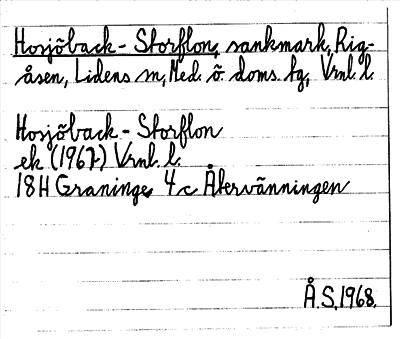 Hosjöback - Storflon, sankmark, Rig-
åsen, Lidens sn, Med. ö. doms. tg, Vrnl. l.
Hosjöback - Storflon
ek (1967) Vrnl. l.
18H Graninge 4c Åkervänningen
Å.S. 1968.